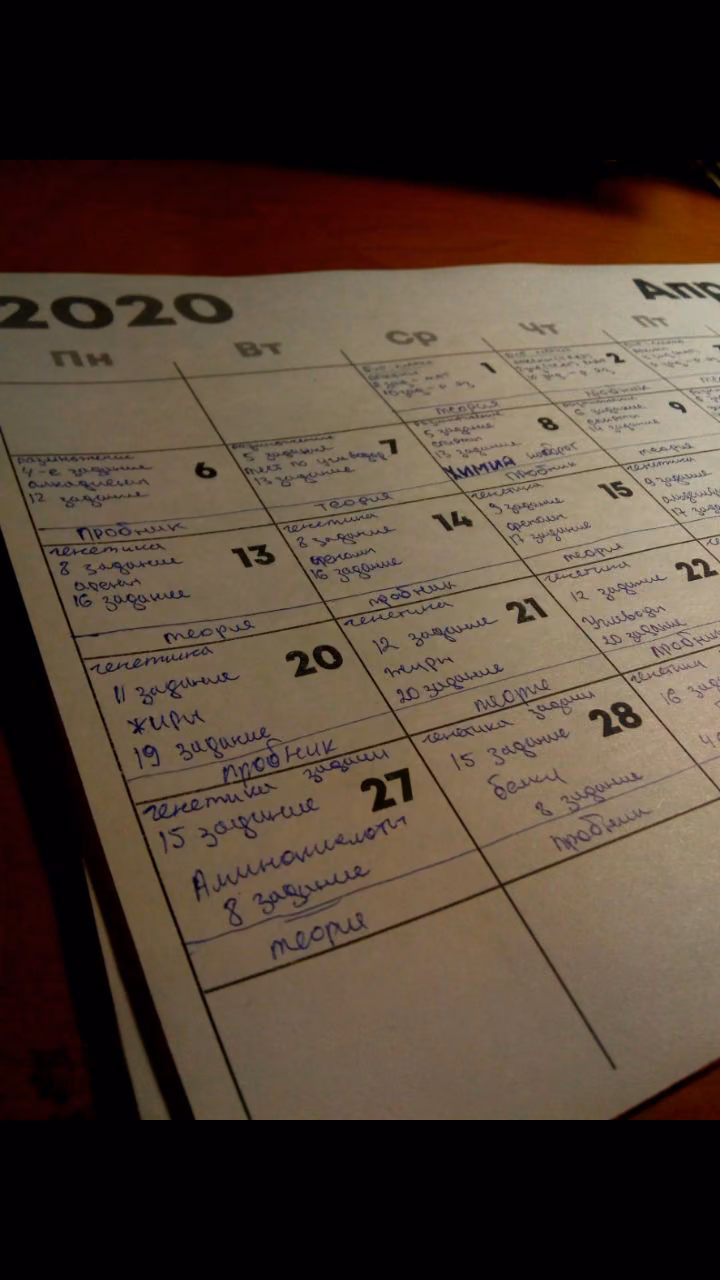 2020
Апр
Пн Вт Ср Чт Пт
1
теория
2
пробник
6
размножение
4-е задание
алкадиены
12 задание
пробник
7
размножение
5 задание
тест по углевод
13 задание
теория
8
5 задание
13 задание
ХИМИЯ
пробник
9
6 задание
спирты
14 задание
теория
13
генетика
8 задание
арены
16 задание
теория
14
генетика
8 задание
фенолы
16 задание
пробник
15
генетика
9 задание
фенолы
17 задание
теория
генетика
9 задание
17 зада
20
генетика
11 задание
жиры
19 задание
пробник
21
генетика
12 задание
жиры
20 задание
теория
22
генетика
12 задание
Углеводы
20 задание
пробник
27
генетика задачи
15 задание
Аминокислоты
8 задание
теория
28
генетика задачи
15 задание
белки
8 задание
пробник
генетика
16 зада